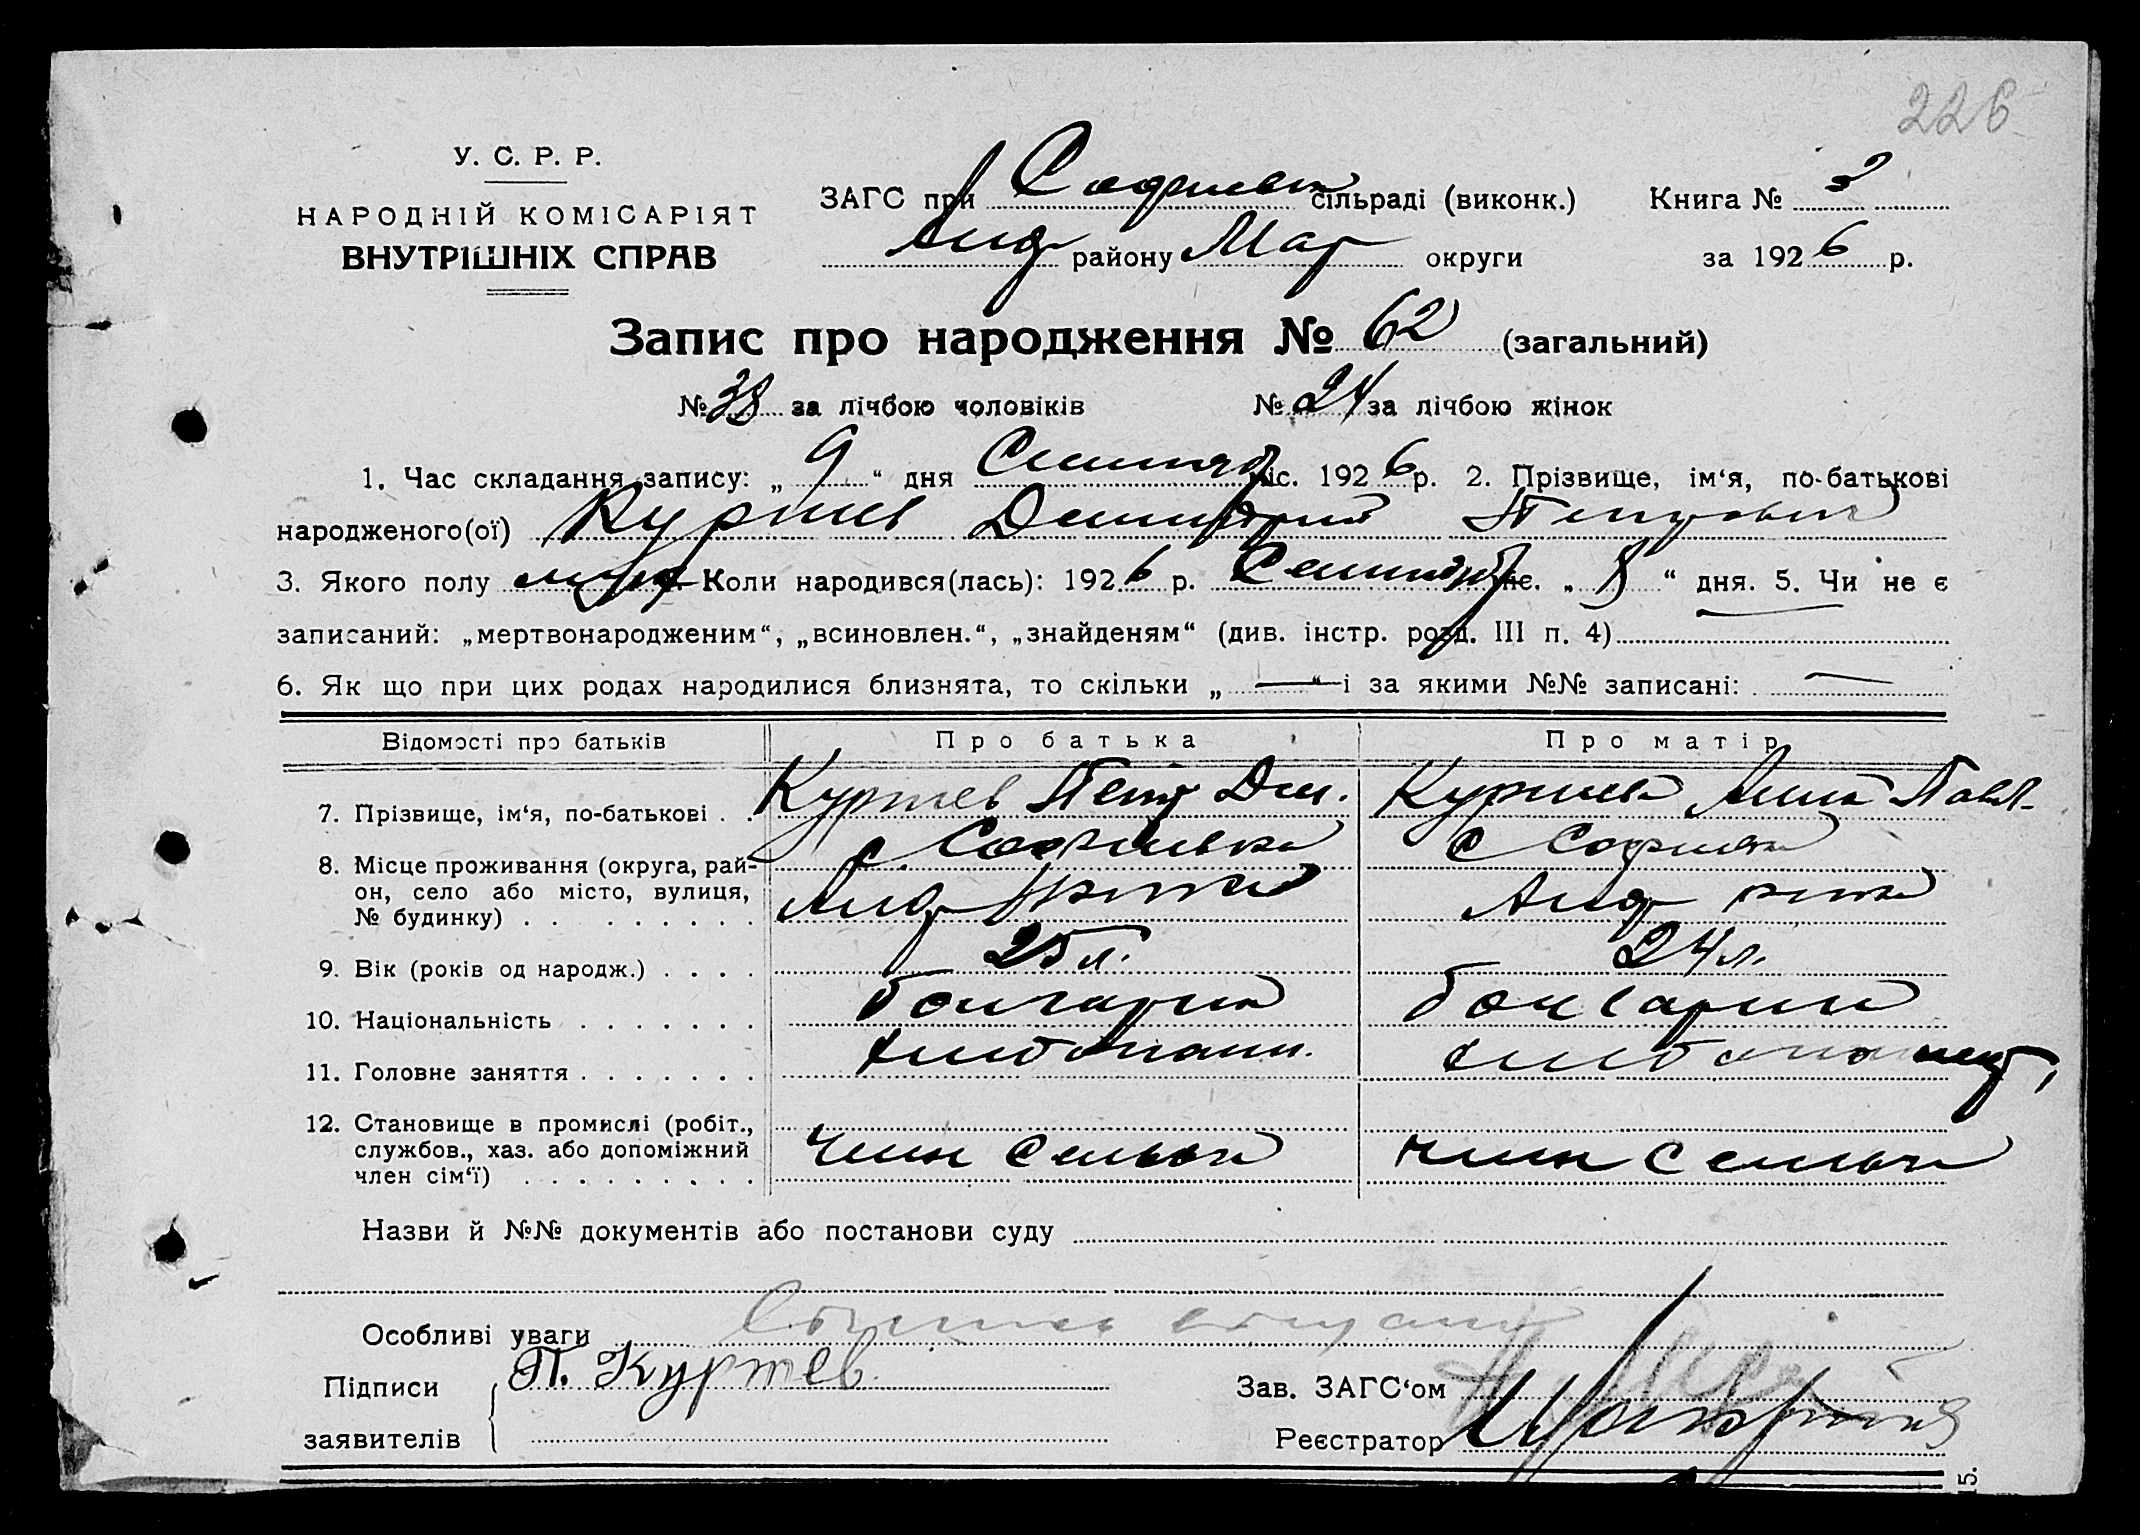 226
У. С. Р. Р.
НАРОДНІЙ КОМІСАРІЯТ
ВНУТРІШНІХ СПРАВ
ЗАГС при Софиевск сільраді (виконк.) Книга № 3
Анд району Мар округи за 1926 р.
Запис про народження № 62 (загальний)
№ 38 за лічбою чоловіків № 24 за лічбою жінок
1. Час складання запису: „ 9 “ дня Сентяб міс. 1926 р. 2. Прізвище, ім‘я, по-батькові
народженого(ої) Куртев Димитрий Петрович
3. Якого полу муж Коли народився(лась): 1926 р. Сентяб міс. „ 8 “ дня. 5. Чи не є
записаний: „мертвонародженим“, „всиновлен.“, „знайденям“ (див. інстр. розд. III п. 4)
6. Як що при цих родах народилися близнята, то скільки „ — “ і за якими №№ записані: —
Відомості про батьків Про батька Про матір
7. Прізвище, ім‘я, по-батькові . . Куртев Петр Дм. Куртева Анна Павл.
8. Місце проживання (округа, рай- с. Софиевка с Софиевка
он, село або місто, вулиця, Анд Анд
№ будинку) . . . . . . . . .
9. Вік (років од народж.) . . . . 25 л. 24 л.
10. Національність . . . . . . . болгарин болгарин
11. Головне заняття . . . . . . . хлебопаш.
12. Становище в промислі (робіт.,
службов., хаз. або допоміжний член семьи член семьи
член сім‘ї) . . . . . . . . .
Назви й №№ документів або постанови суду
Особливі уваги
Підписи П. Куртев Зав. ЗАГС‘ом
заявителів Реєстратор
15.